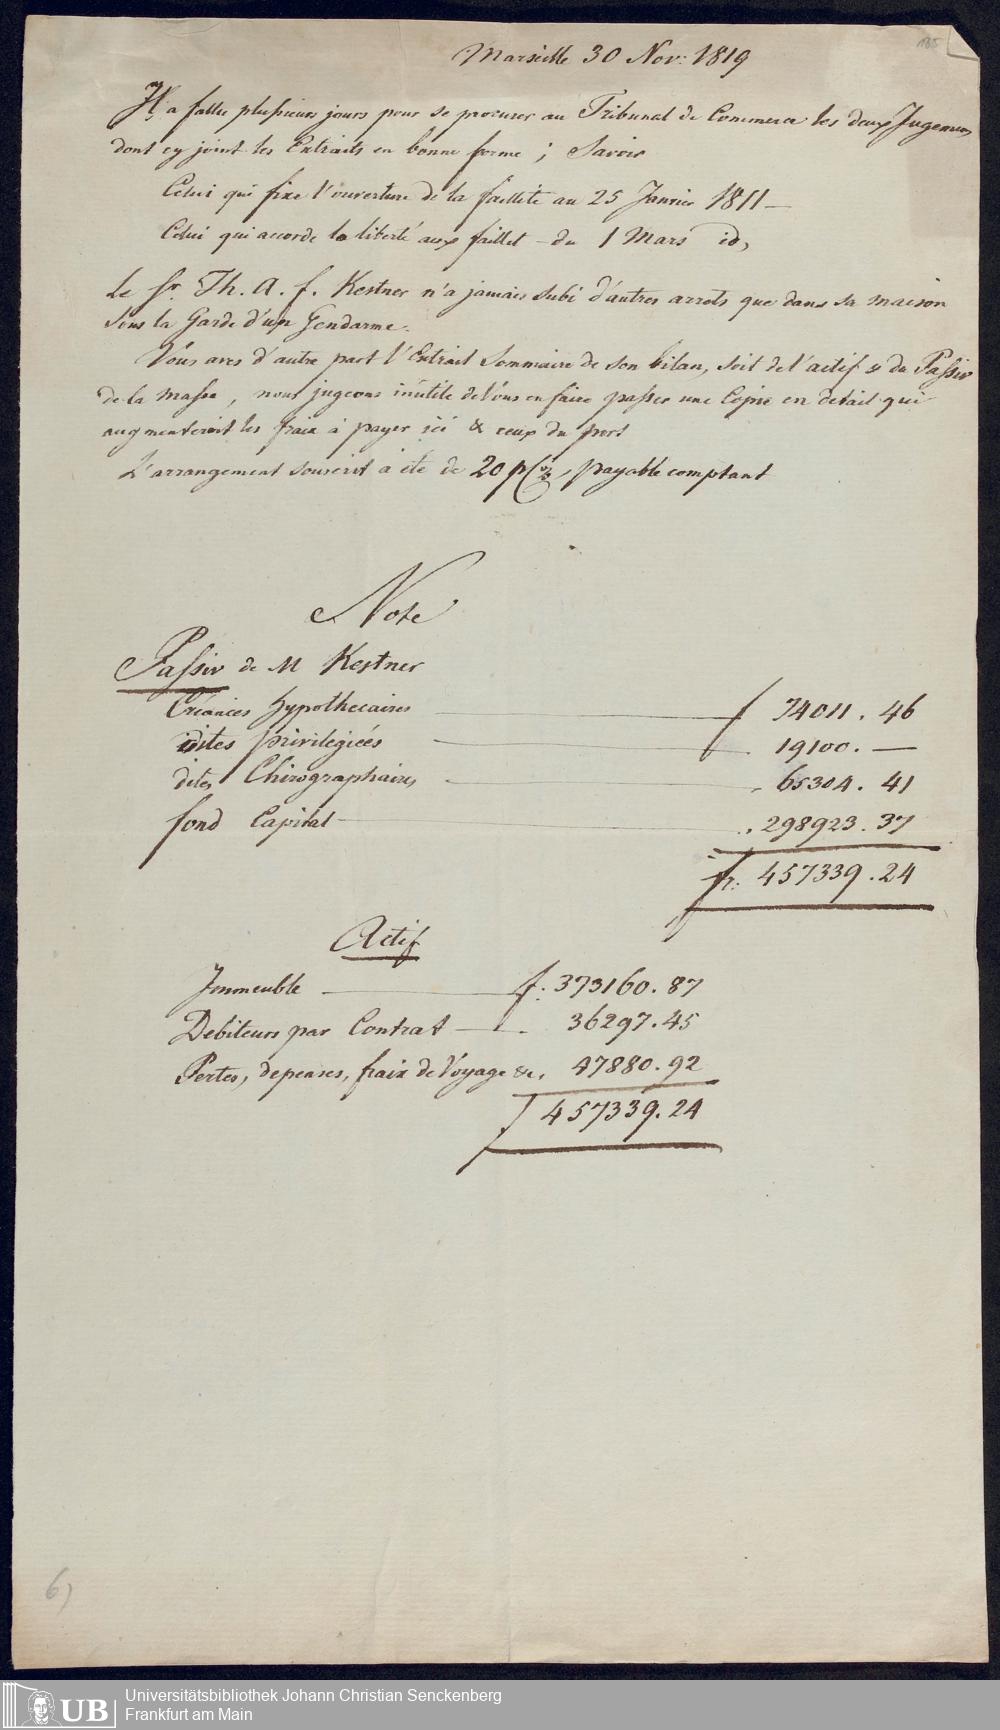 185
Marseille 30 Nov: 1819
Il a fallu plusieurs jours pour se procurer au Tribunal de Commerce les deux Jugemens
dont cy joint les Extraits en bonne forme ; Savoir
Celui qui fixe l'ouverture de la faillite au 25 Janvier 1811 —
Celui qui accorde la liberté aux faillit — du 1 Mars id,
Le Sr. Th. A. f. Kestner n'a jamais subi d'autres arrets que dans sa maison
sous la Garde d'un Gendarme.
Vous aves d'autre part l'Extrait Sommaire de son bilan, soit de l'actif & du Passiv
de la masse, nous jugeons inutile de Vous en faire passer une Copie en detail qui
augmenteroit les fraix à payer ici & ceux du port
L'arrangement souscrit à été de 20 p%, payable comptant
Note
Passiv de M Kestner
Créances hypothecaires f 74011. 46
dites privilegiées 19100. —
dites Chirographaires 65304. 41
fond Capital 298923. 37
fr: 457339. 24
Actif
Immeuble f: 373160. 87
Debiteurs par Contrat 36297. 45
Pertes, depenses, fraix de Voyage &c, 47880. 92
f 457339. 24
6)
UB
Universitätsbibliothek Johann Christian Senckenberg
Frankfurt am Main